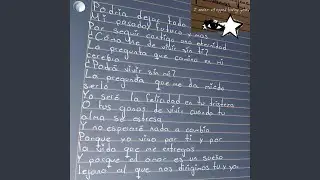 Podría dejar todo
Mi pasado, futuro y más
Por seguir contigo una eternidad
¿Cómo he de vivir sin ti?
La pregunta que camina en mi
cerebro
¿Podré vivir sin mí?
La pregunta que me da miedo
serlo
Yo seré la felicidad en tu tristeza
O tus ganas de vivir cuando tu
alma se estresa
Y no esperaré nada a cambio
Porque yo vivo por ti y por
la vida que me entregas
Y porque el amor es un sueño
lejano al que nos dirigimos tu y yo
I never stopped loving you